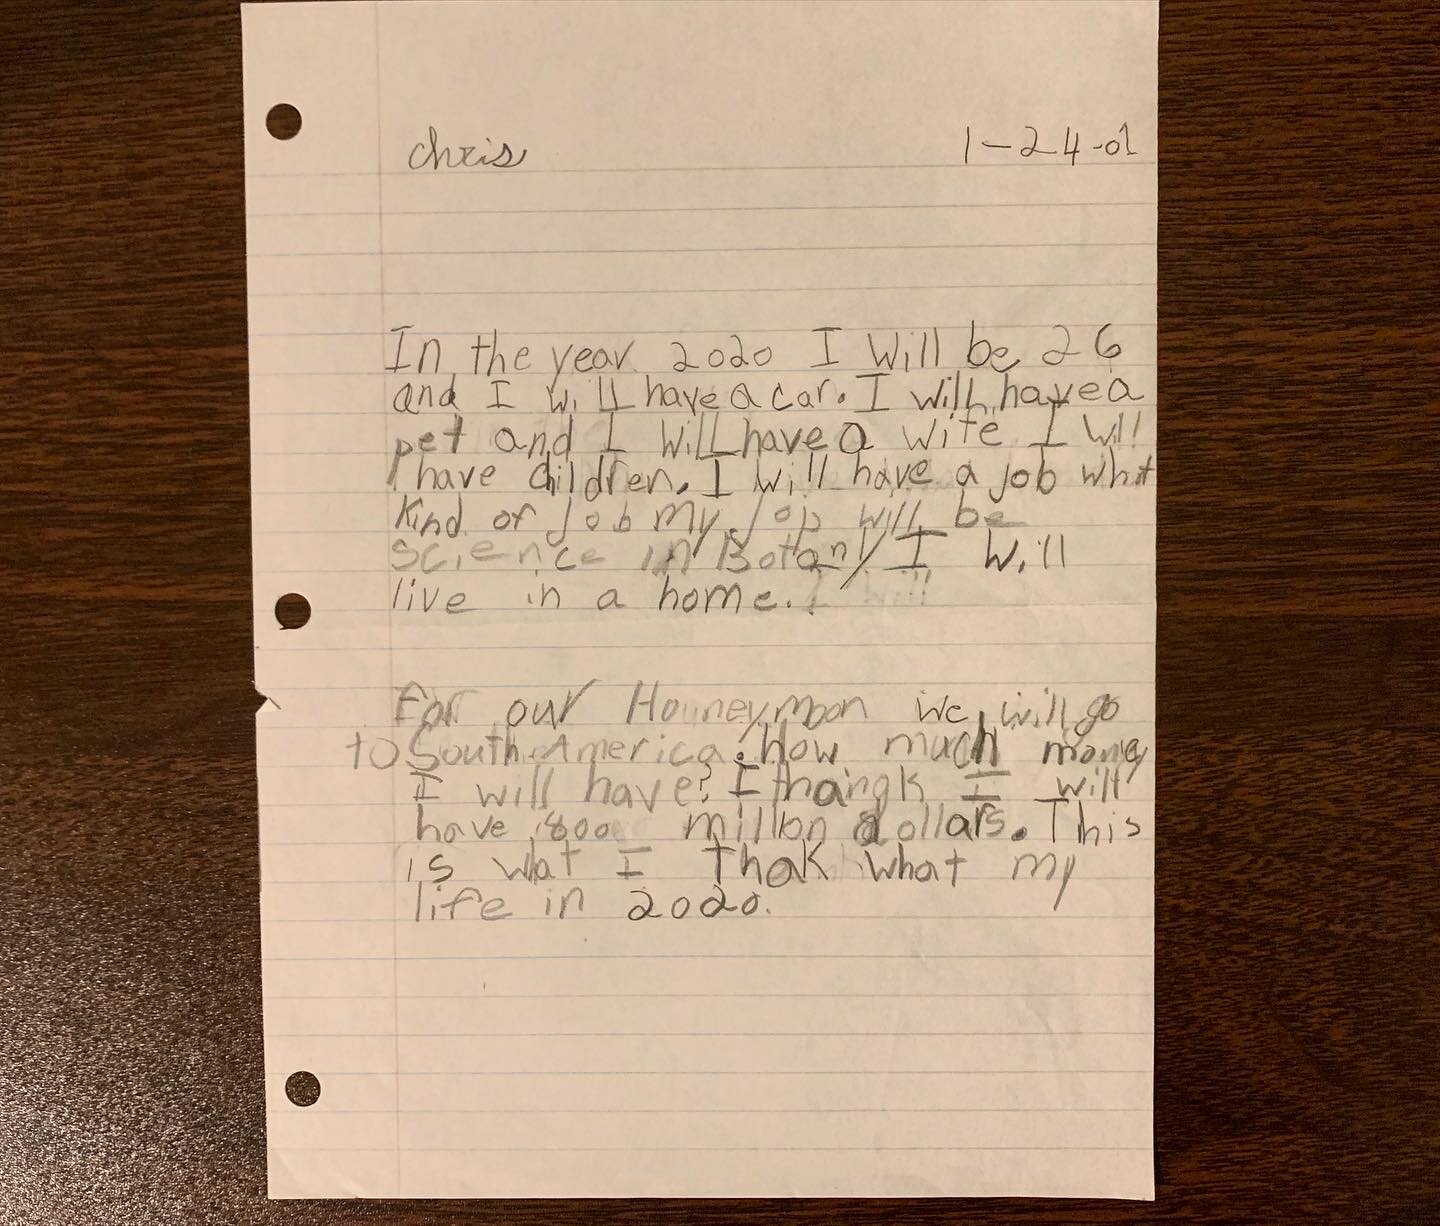 chris 1-24-01
In the year 2020 I will be 26
and I will have a car. I will have a
pet and I will have a wife I will
have children. I will have a job what
kind of job my job will be
science in Botany I will
live in a home. I will
For our Houneymoon we will go
to South America. How much money
I will have? I thaingk I will
have 800 millon dollars. This
is what I thak what my
life in 2020.